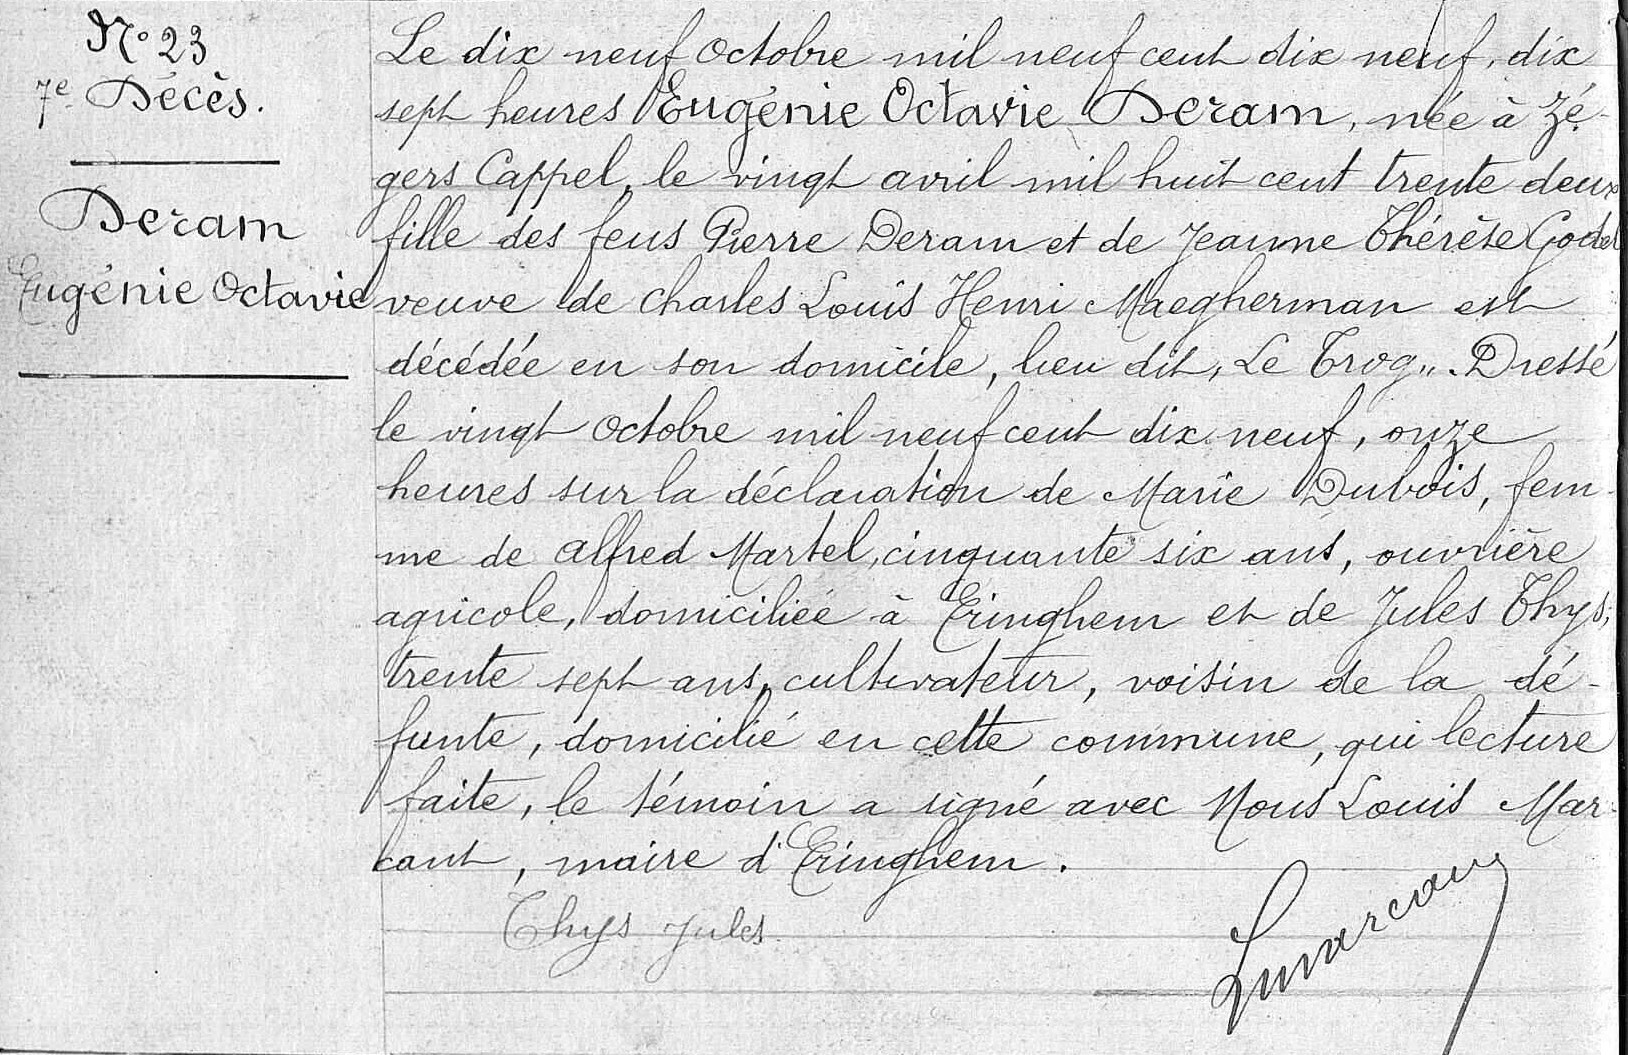 N° 23
7e Décès.
Deram
Eugénie Octavie
Le dix neuf octobre mil neuf cent dix neuf, dix
sept heures Eugénie Octavie Deram, née à Zé-
gers Cappel, le vingt avril mil huit cent trente deux
fille des feus Pierre Deram et de Jeanne Thérèse Godel
veuve de Charles Louis Henri Maegherman est
décédée en son domicile, lieu dit, Le Trog". Dressé
le vingt octobre mil neuf cent dix neuf, onze
heures sur la déclaration de Marie Dubois, fem-
me de Alfred Martel, cinquante six ans, ouvrière
agricole, domiciliée à Eringhem et de Jules Thys,
trente sept ans, cultivateur, voisin de la dé-
funte, domicilié en cette commune, qui lecture
faite, le témoin a signé avec Nous Louis Mar-
cant, maire d'Eringhem.
Thys Jules